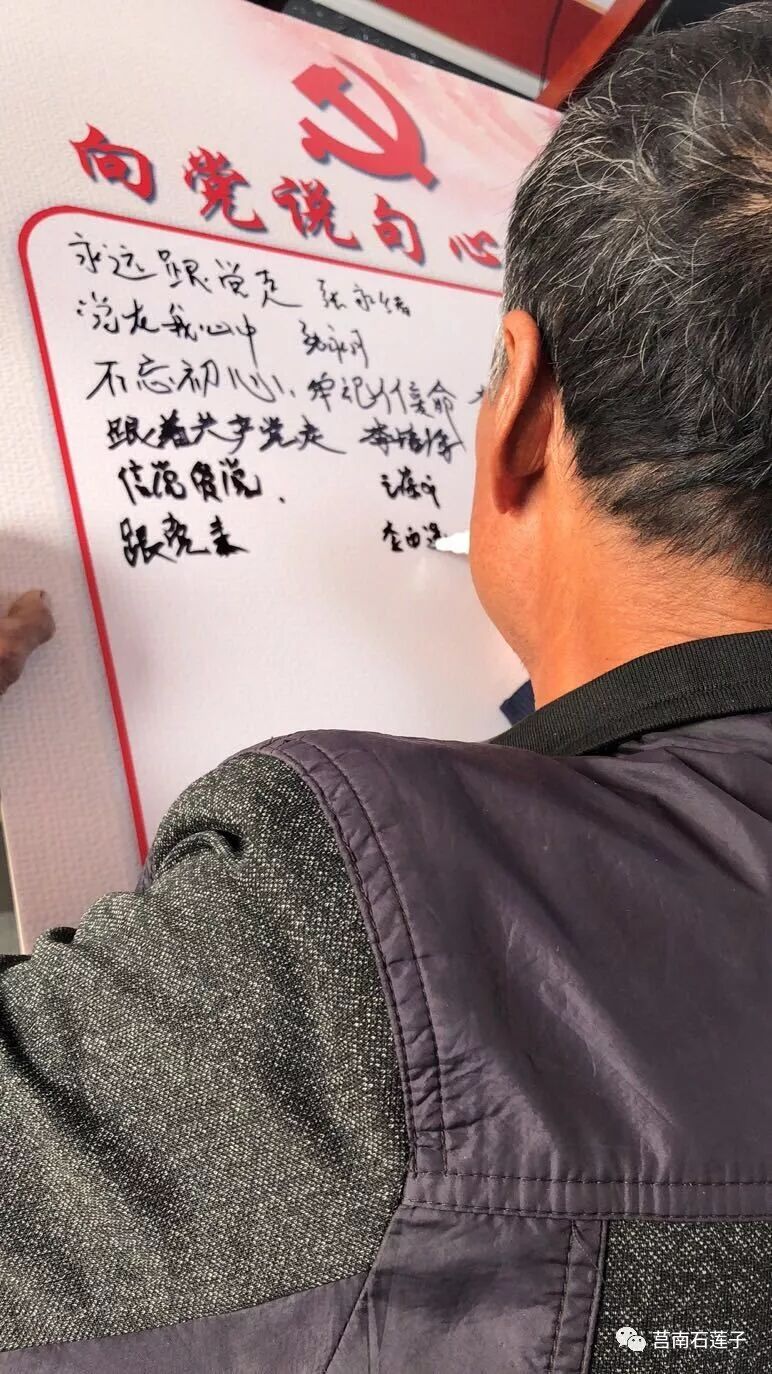 向党说句心
永远跟党走 张永绪
党在我心中 张永河
不忘初心、牢记使命
跟着共产党走 李培
信党爱党.
跟党走
莒南石莲子